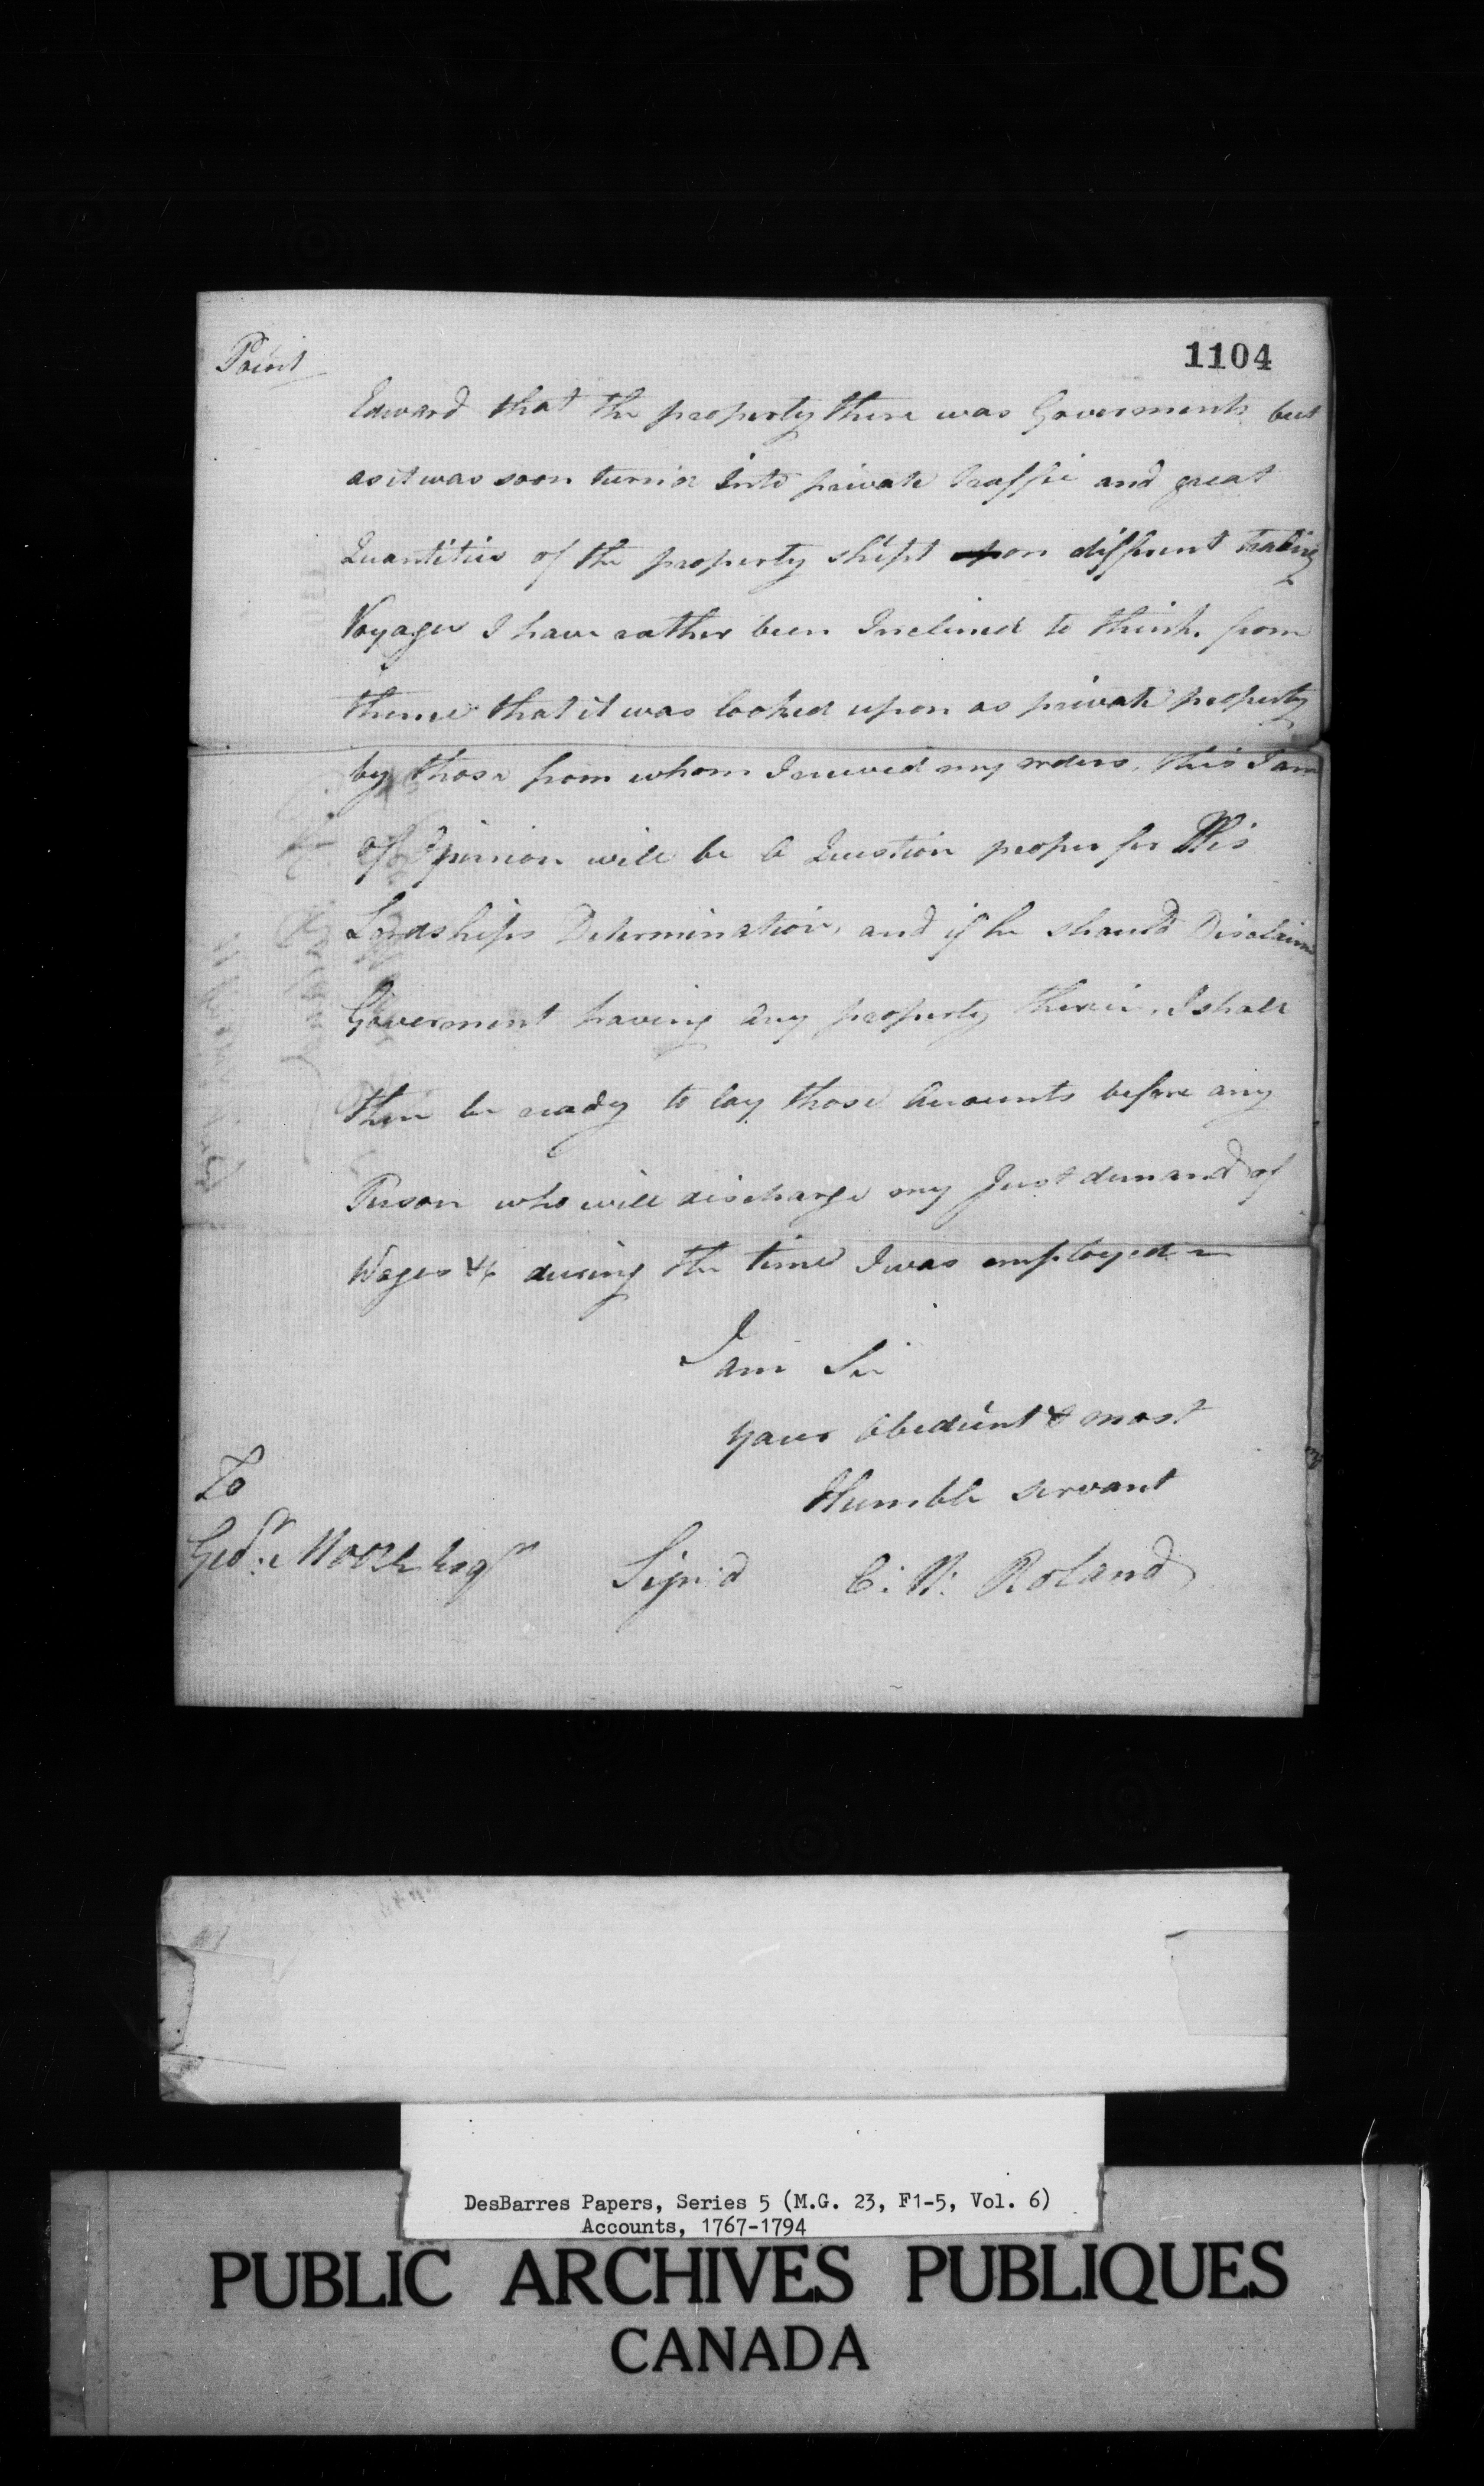 1104
Point
Edward that the property there was Goverments but
as it was soon turn'd Into private traffic and great
Quantities of the property shipt on different trading
Voyages I have rather been Inclined to think from
thence that it was looked upon as private property
by those from whom I received my orders, this I am
of Opinion will be a Question proper for His
Lordships Determination, and if he should Disclaim
Goverment having any property therein, I shall
then be ready to lay those Accounts before any
Person who will discharge my Just demand of
Wages &c during the time I was employed
I am Sir
your Obedient & most
Humble servant
To
Geo: Moore Esqr
Sign'd C: W: Roland
DesBarres Papers, Series 5 (M.G. 23, F1-5, Vol. 6)
Accounts, 1767-1794
PUBLIC ARCHIVES PUBLIQUES
CANADA